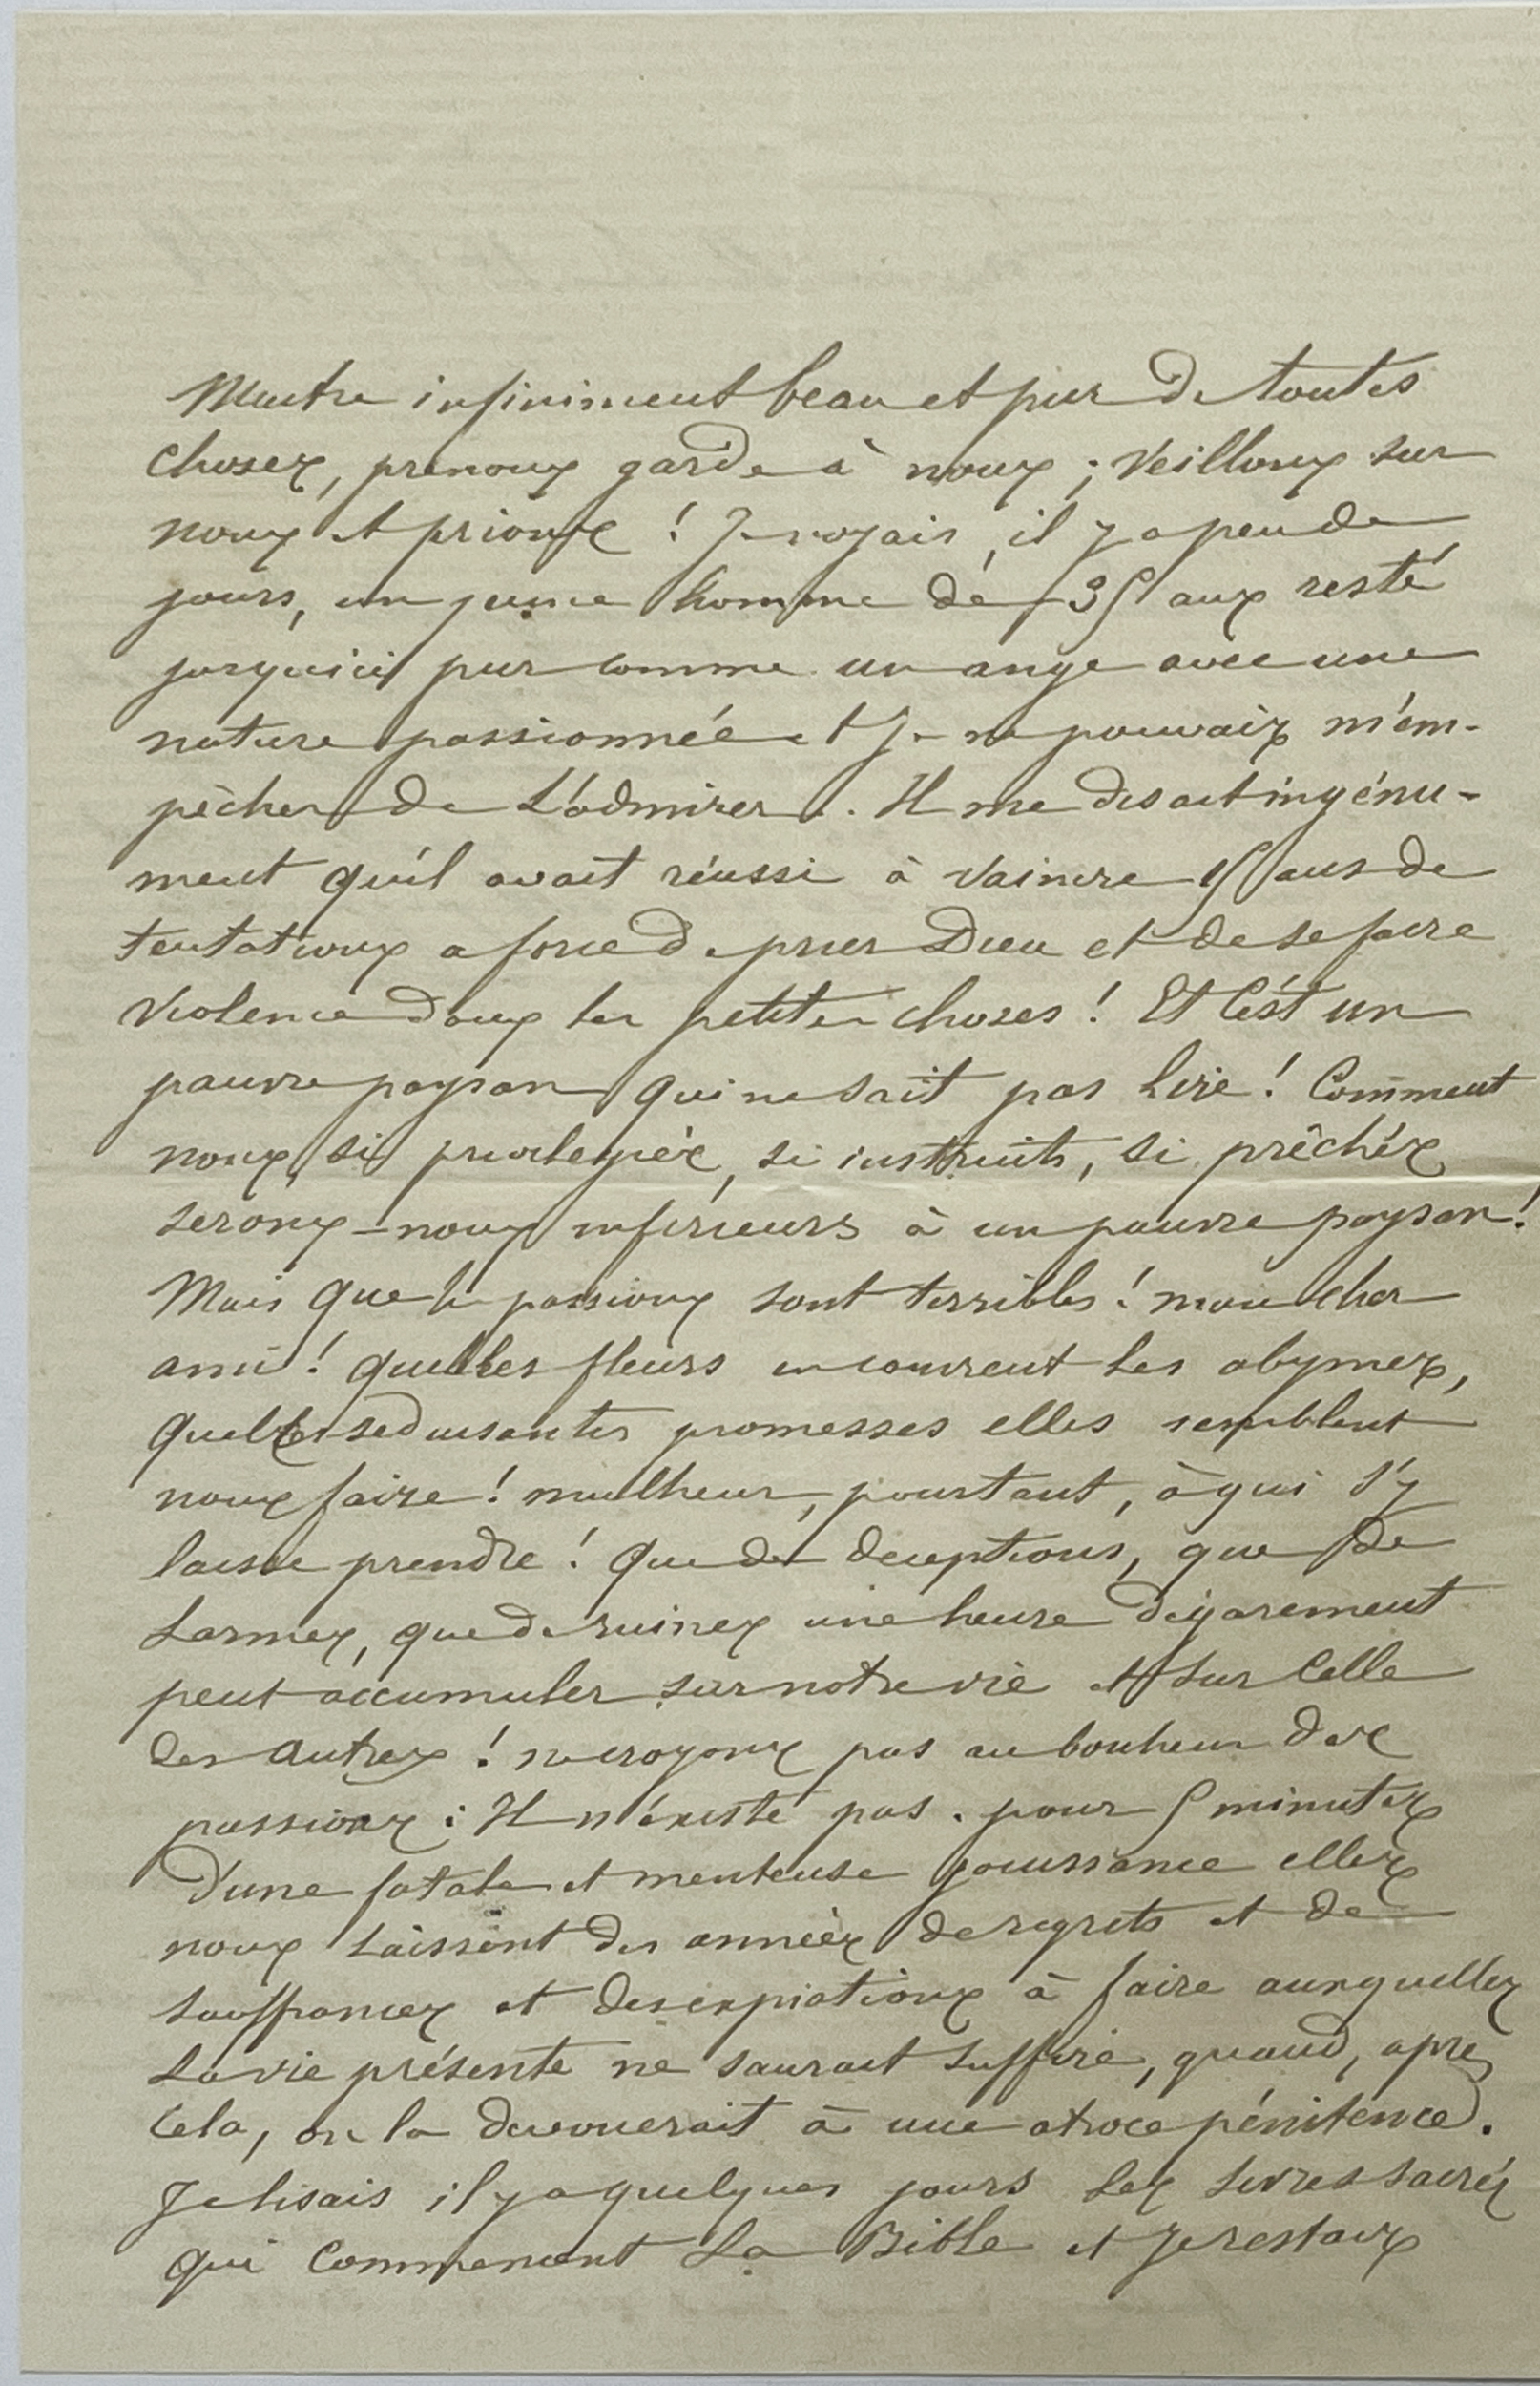 Maitre infiniment beau et pur de toutes
choses, prenons garde à nous ; veillons sur
nous et prions ! Je voyais, il y a peu de
jours, un jeune homme de 35 ans resté
jusqu'ici pur comme un ange avec une
nature passionnée et je ne pouvais m'em-
pêcher de l'admirer. Il me disait ingénu-
ment qu'il avait réussi à vaincre 15 ans de
tentations a force de prier Dieu et de se faire
violence dans les petites choses ! Et c'est un
pauvre paysan qui ne sait pas lire ! Comment
nous, si privilégiés, si instruits, si prêchés
serons-nous inférieurs à un pauvre paysan !
Mais que les passions sont terribles ! mon cher
ami ! quelles fleurs en couvrent les abymes,
quelles seduisantes promesses elles semblent
nous faire ! malheur, pourtant, à qui s'y
laisse prendre ! Que de deceptions, que de
larmes, que de ruines une heure d'égarement
peut accumuler sur notre vie et sur celle
des autres ! ne croyons pas au bonheur des
passions : Il n'existe pas. pour 5 minutes
d'une fatale et menteuse jouissance elles
nous laissent des années de regrets et de
souffrances et des expiations à faire auxquelles
la vie présente ne saurait suffire, quand, après
cela, on la dévouerait à une atroce pénitence.
Je lisais il y a quelques jours les livres sacrés
qui commencent la Bible et je restais